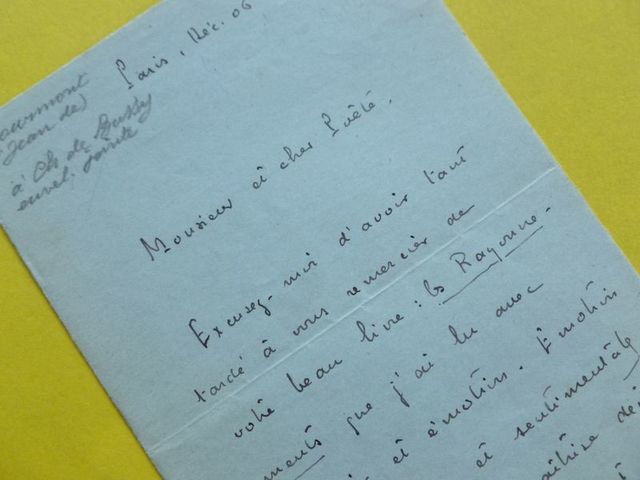 ourmont
(Jean de)
à Ch. de Bussy
envel. jointe
Paris, Déc. 06
Monsieur et cher Poète,
Excusez-moi d'avoir tant
tardé à vous remercier de
votre beau livre : les Rayonne-
ments que j'ai lu avec
et émotion. Émotions
et sentimentale